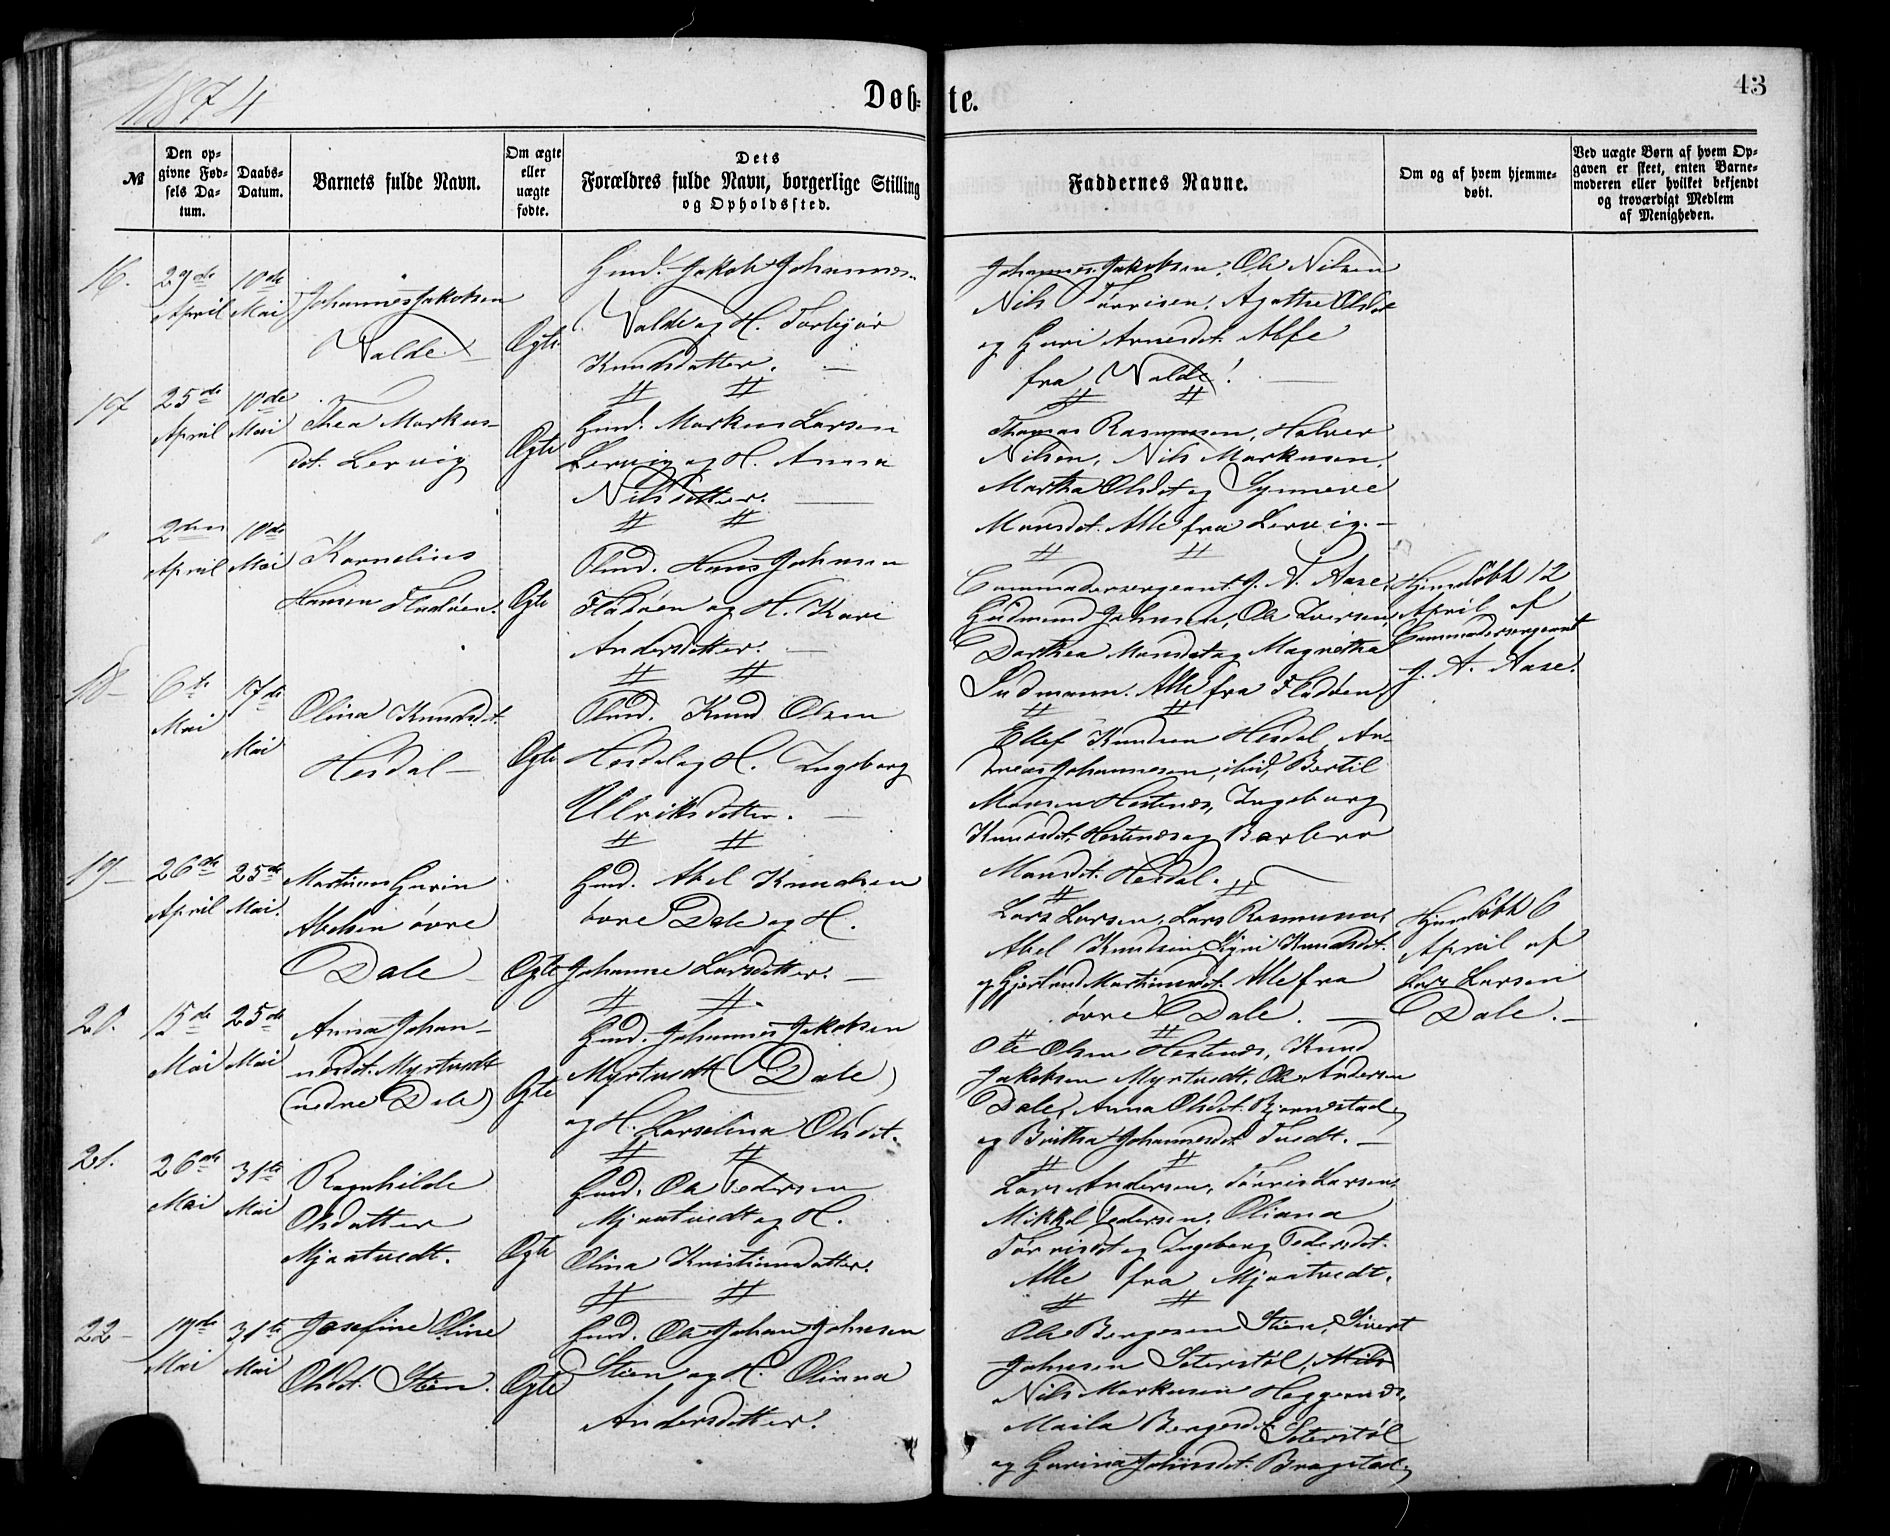 1874
Døb-te.
43
№
Den op-
givne Fød-
sels Da-
tum.
Daabs-
Datum.
Barnets fulde Navn.
Om ægte
eller
uægte
fødte.
Dets
Forældres fulde Navn, borgerlige Stilling
og Opholdssted.
Faddernes Navne.
Om og af hvem hjemme-
døbt.
Ved uægte Børn af hvem Op-
gaven er skeet, enten Barne-
moderen eller hvilket bekjendt
og troværdigt Medlem
af Menigheden.
16.
29de
April
10de
Mai
Johannes Jakobsen
Valde
Ægte
Gmd. Jakob Johannes-
Valde og H. Torbjør
Knudsdatter.
Johannes Jakobsen, Ole Nilsen
Nils Tørrisen, Agathe Olsdt
og Guri Arnesdt. Alle
fra Valde.
17
25de
April
10de
Mai
Thea Markus-
dt. Lervig
Ægte
Gmd. Markus Larsen
Lervig og H. Anna
Nilsdatter.
Thomas Rasmusen, Halvor
Nilsen, Nils Markusen,
Martha Olsdt og Synneve
Monsdt. Alle fra Lervig.
2den
April
10de
Mai
Kornelius
Hansen Fladøen.
Ægte
Hans Johnsen
Fladøen og H. Kari
Andersdatter.
Commandersergeant J. A. Aase,
Gudmund Johnsen, Ole Iversen,
Dorthea Monsdt og Magnetha
Gudmann. Alle fra Fladøen.
Hjemdøbt 12
April af
Commandersergeant
J. A. Aase.
18
6te
Mai
17de
Mai
Olina Knudsdt.
Hesdal
Ægte
Knud Olsen
Hesdal og H. Ingeborg
Ulriksdatter.
Ellef Knudsen Hesdal, An-
dreas Johannesen, ibid, Bertil
Monsen Hestenes, Ingeborg
Knudsdt. Hestenes og Barbro
Monsdt. Hesdal.
19
26de
April
25de
Mai.
Martinus Gurin
Abelsen øvre
Dale
Ægte
Gmd. Abel Knudsen
øvre Dale og H.
Johanne Larsdatter.
Lars Larsen, Lars Rasmusen,
Abel Knudsen, Knudsdt.
og Gjertrud Martinusdt. Alle fra
øvre Dale.
Hjemdøbt 6
April af
Lars Larsen
Dale.
20.
15de
Mai
25de
Mai
Anna Johan-
nesdt. Myrtvedt
(nedre Dale)
Ægte
Gmd. Johannes Jakobsen
Myrtvedt (Dale)
og H. Larselina Olsdt.
Ole Olsen Hestenes, Knud
Jakobsen Myrtvedt, Ole Andersen
Dale, Anna Olsdt. Bjørnestad
og Britha Johannesdt. Tvedt.
21.
26de
Mai
31te
Mai
Ragnhilde
Olsdatter
Mjaatvedt.
Ægte
Gmd. Ole Pedersen
Mjaatvedt og H.
Olina Kristiansdatter.
Lars Andersen, Tørris Larsen,
Mikkel Pedersen, Oliana
Tørrisdt og Ingeborg Pedersdt.
Alle fra Mjaatvedt.
22
19de
Mai
31te
Mai
Josefine Oline
Olsdt. Steen.
Ægte
Gmd. Ole Johan Johnsen
Steen og H. Oliana
Andersdatter.
Ole Bergesen Steen, Sivert
Johnsen Seterstøl,
Nils Markusen Heggernes,
Maila Bergesdt Seterstøl
og Gurina Johnsdt. Bragstad